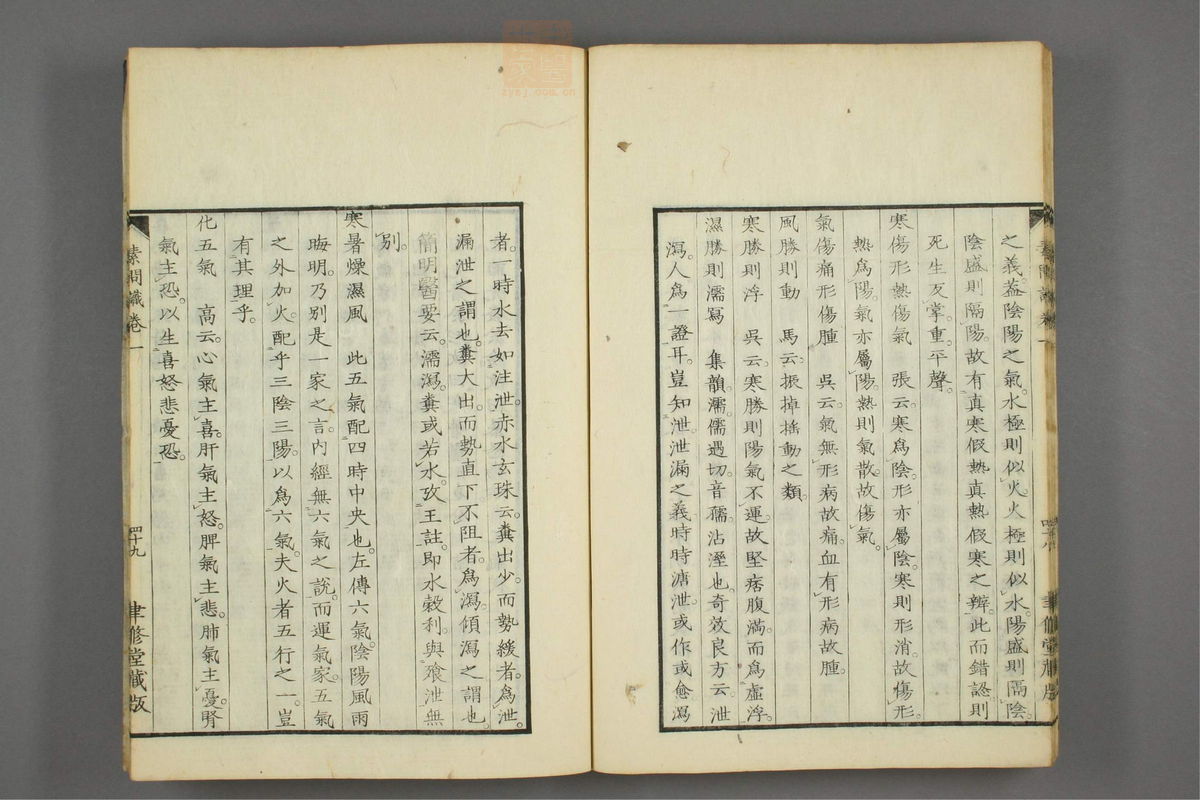 素問識卷一
四十八
聿修堂藏版
之義。蓋陰陽之氣。水極則似火。火極則似水。陽盛則隔陰。
陰盛則隔陽。故有真寒假熱真熱假寒之辨。此而錯認則
死生反掌。重。平聲。
寒傷形熱傷氣 張云。寒爲陰。形亦屬陰。寒則形消。故傷形。
熱爲陽。氣亦屬陽。熱則氣散。故傷氣。
氣傷痛形傷腫 吳云。氣無形病故痛。血有形病故腫。
風勝則動 馬云。振掉搖動之類。
寒勝則浮 吳云。寒勝則陽氣不運。故堅痞腹滿。而爲虛浮。
濕勝則濡寫 集韻。濡。儒遇切。音孺。沾溼也。奇效良方云。泄
瀉。人爲一證耳。豈知泄。泄漏之義。時時溏泄。或作或愈。瀉
者。一時水去如注泄。赤水玄珠云。糞出少。而勢緩者。爲泄。
漏泄之謂也。糞大出。而勢直下不阻者。爲瀉。傾瀉之謂也
簡明醫要云。濡瀉。糞或若水。攷王註。即水穀利。與飧泄無
別。
寒暑燥濕風 此五氣配四時中央也。左傳六氣。陰陽風雨
晦明。乃別是一家之言。內經無六氣之說。而運氣家。五氣
之外加火。配乎三陰三陽。以爲六氣。夫火者五行之一。豈
有其理乎。
化五氣 高云。心氣主喜。肝氣主怒。脾氣主悲。肺氣主憂。腎
氣主恐。以生喜怒悲憂恐。
素問識卷一
四十九
聿修堂藏版
zysj.com.cn